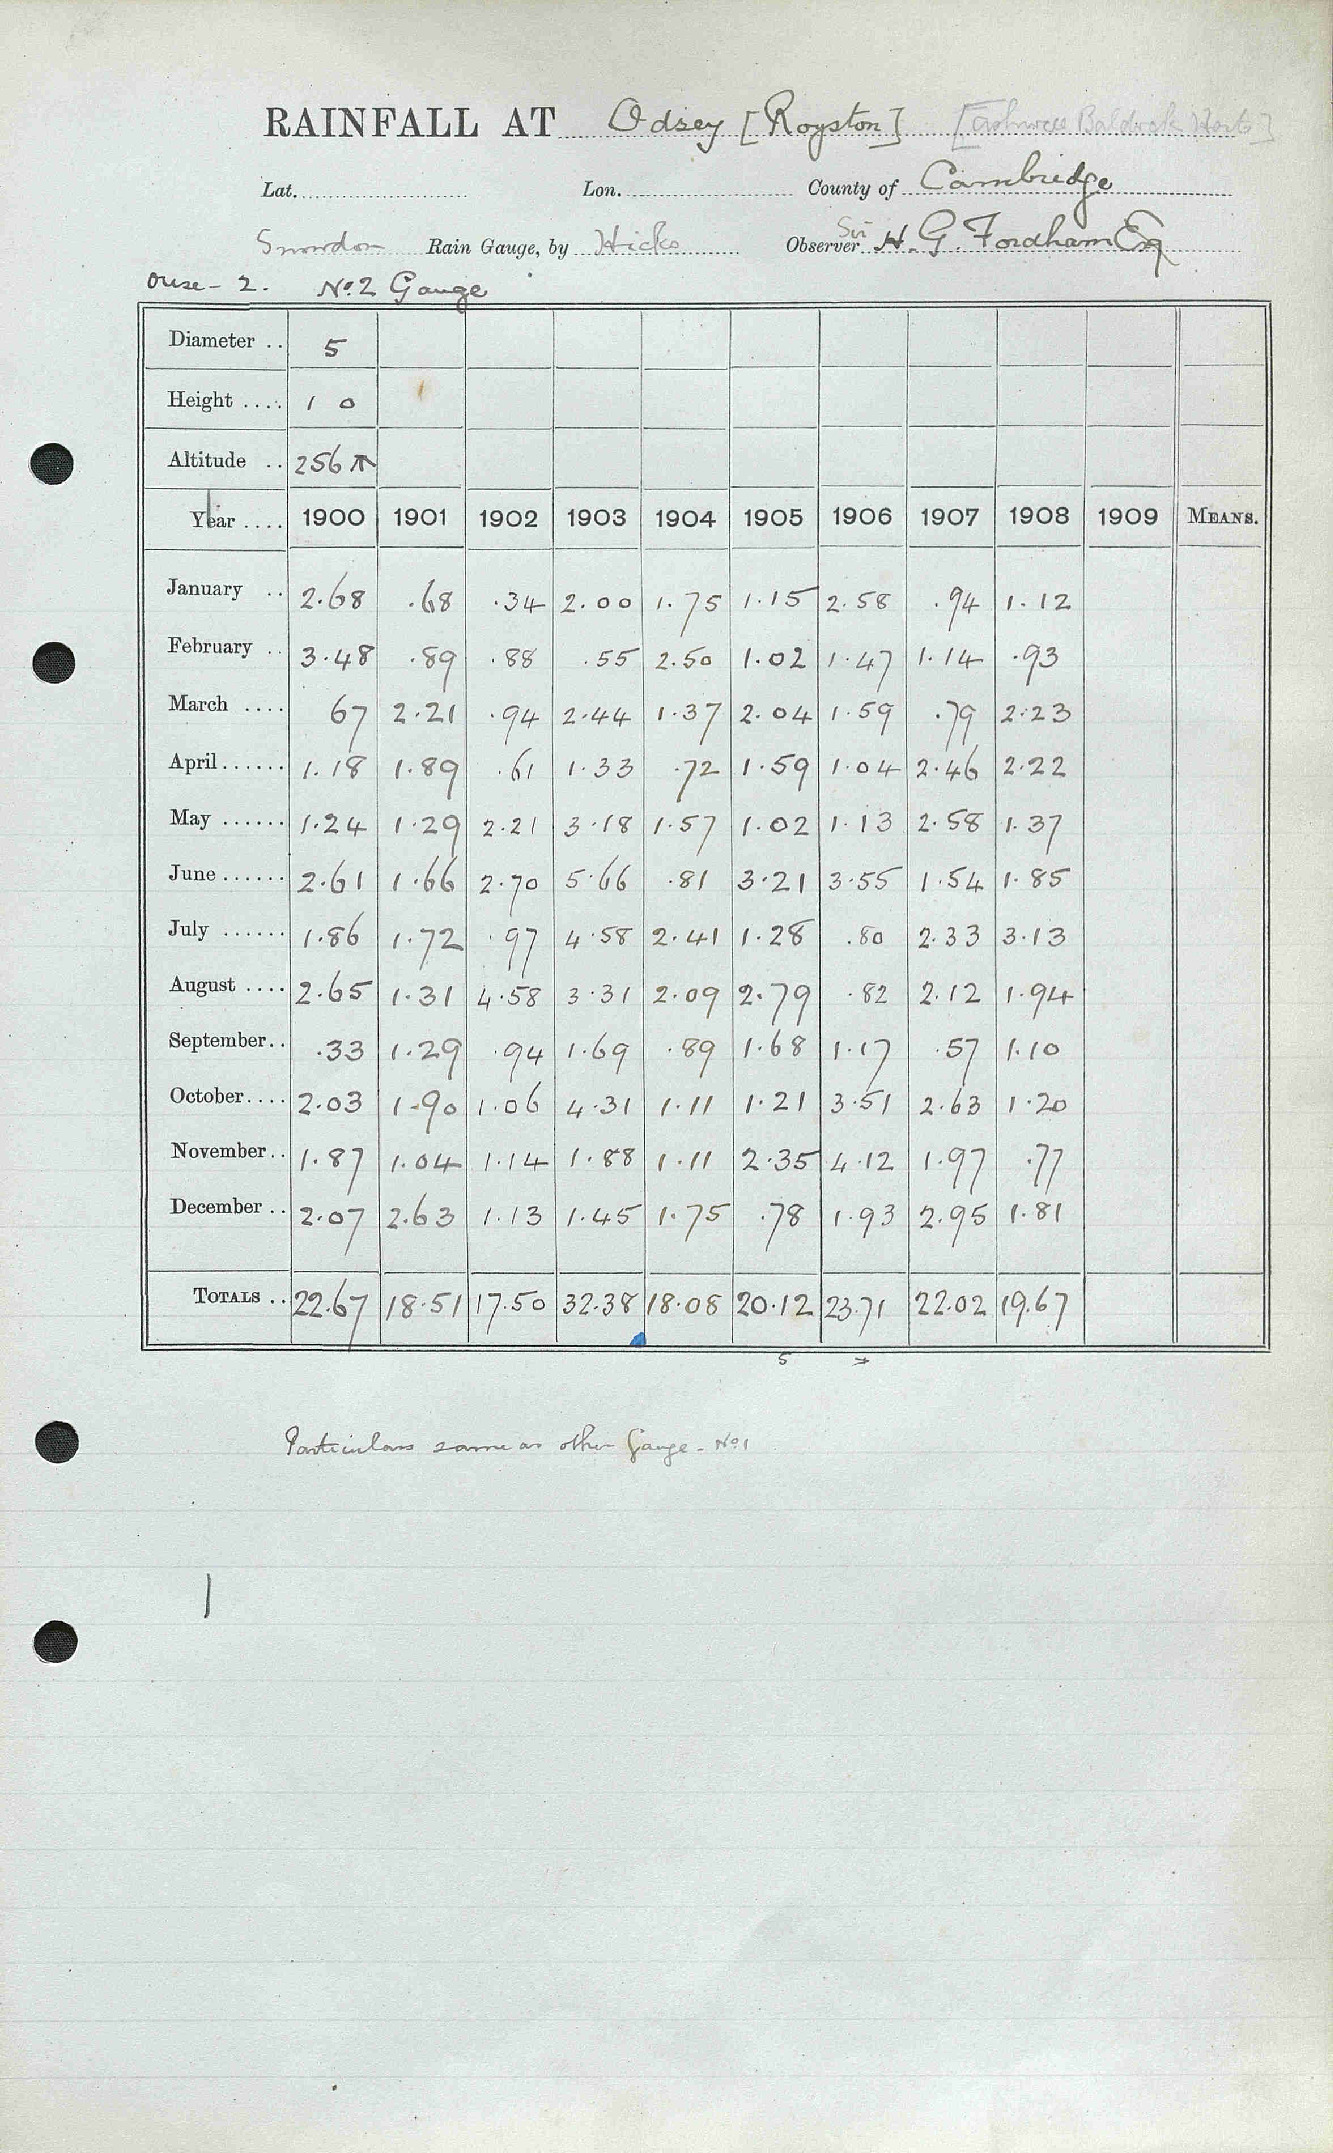 RAINFALL AT Odsey [Royston] [Ashwell Baldock Herts]
Lat. Lon. County of Cambridge
Snowdon Rain Gauge, by Hicks Observer Sir H. G. Fordham Esq
Ouse - 2. No. 2 Gauge
Diameter .. 5
Height .... 1 0
Altitude .. 256
Year .... 1900 1901 1902 1903 1904 1905 1906 1907 1908 1909 MEANS.
January .. 2.68 .68 .34 2.00 1.75 1.15 2.58 .94 1.12
February .. 3.48 .89 .88 .55 2.50 1.02 1.47 1.14 .93
March .... 67 2.21 .94 2.44 1.37 2.04 1.59 .79 2.23
April...... 1.18 1.89 .61 1.33 .72 1.59 1.04 2.46 2.22
May ...... 1.24 1.29 2.21 3.18 1.57 1.02 1.13 2.58 1.37
June...... 2.61 1.66 2.70 5.66 .81 3.21 3.55 1.54 1.85
July ...... 1.86 1.72 .97 4.58 2.41 1.28 .80 2.33 3.13
August .... 2.65 1.31 4.58 3.31 2.09 2.79 .82 2.12 1.94
September.. .33 1.29 .94 1.69 .89 1.68 1.17 .57 1.10
October.... 2.03 1.90 1.06 4.31 1.11 1.21 3.51 2.63 1.20
November.. 1.87 1.04 1.14 1.88 1.11 2.35 4.12 1.97 .77
December .. 2.07 2.63 1.13 1.45 1.75 .78 1.93 2.95 1.81
TOTALS .. 22.67 18.51 17.50 32.38 18.08 20.12 23.71 22.02 19.67
5
Particulars same as other Gauge - No. 1